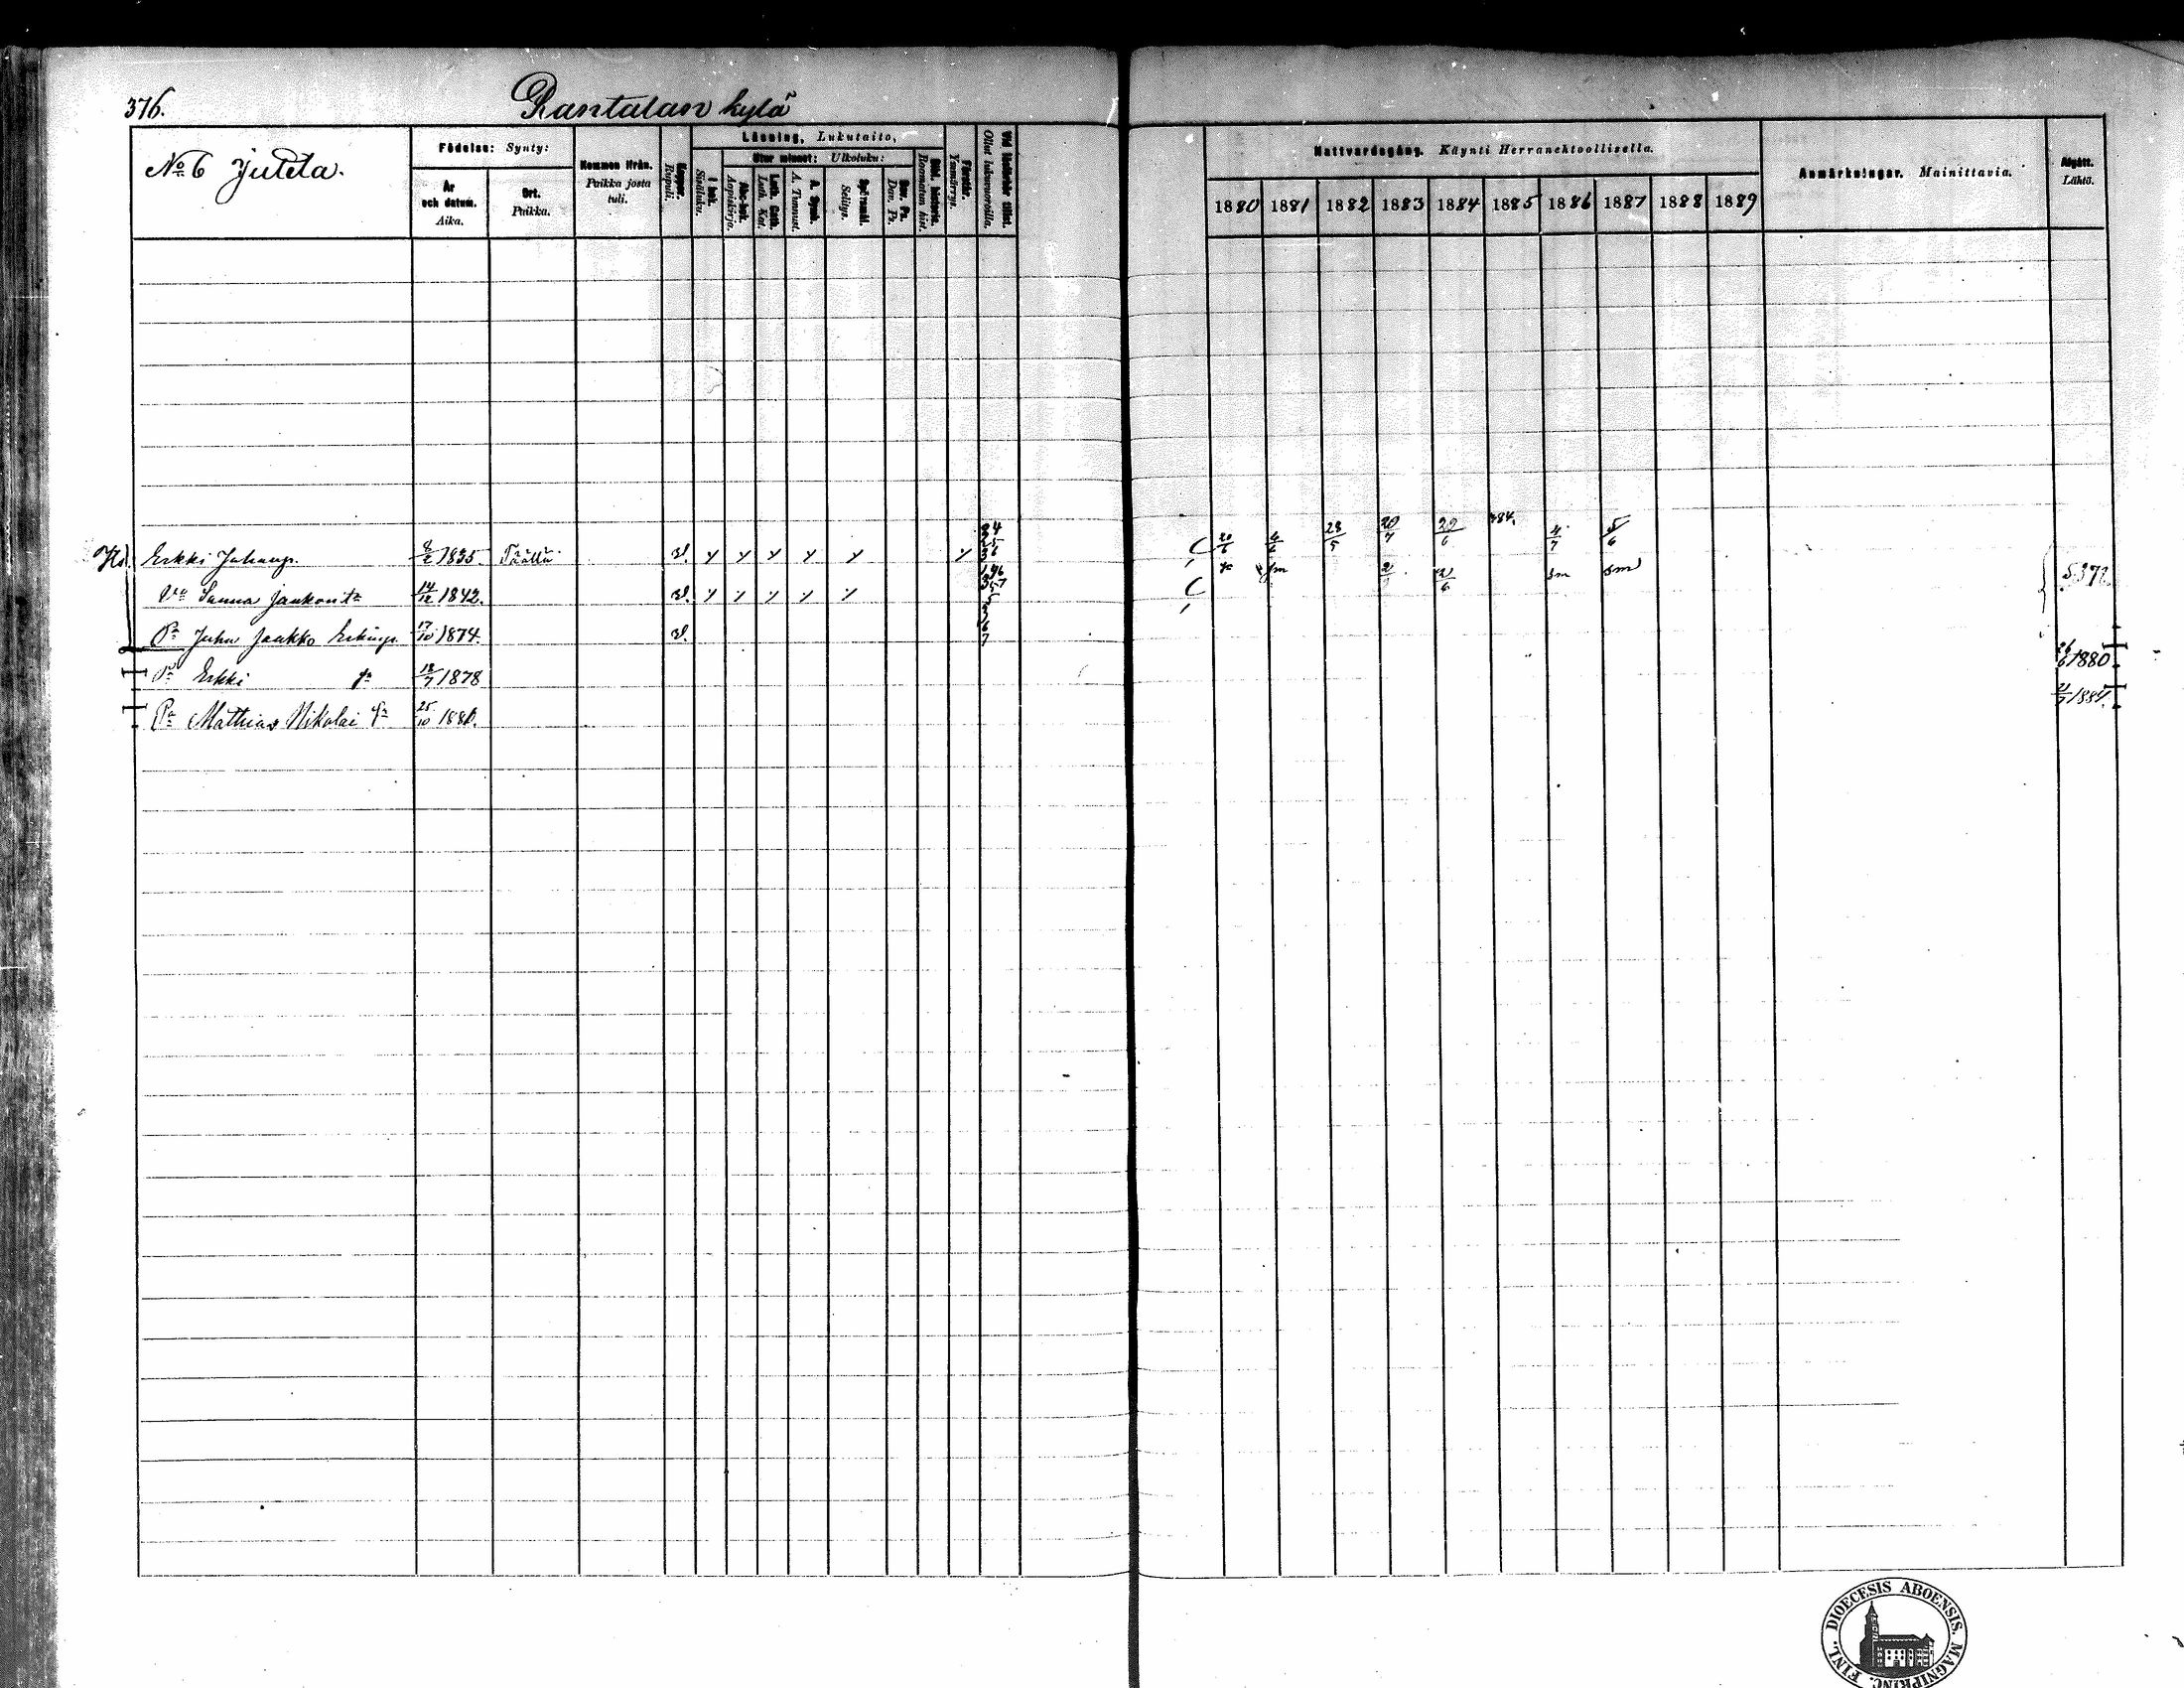 376.
Rantalan kylä
No 6 Jutila.
Födelse: Synty:
År och datum. Aika.
Ort. Paikka.
Kommen ifrån. Paikka josta tuli.
Koppor. Rupuli.
Läsning, Lukutaito,
I bok. Sisäluku.
Utur minnet: Ulkoluku:
Abc-bok. Aapiskirja.
Luth. Cath. Luth. Kat.
A. Symb. A. Tunnust.
Spörsmål. Selitys.
Dav. Ps. Dav. Ps.
Bibl. historia. Raamatun hist.
Förstår. Ymmärrys.
Vid läseförhör tillst. Ollut lukuvuoroilla.
Nattvardsgång. Käynti Herranehtoollisella.
1880 1881 1882 1883 1884 1885 1886 1887 1888 1889
Anmärkningar. Mainittavia.
Afgått. Lähtö.
Erkki Juhanp. 1835. Täällä r. 20/6 4/6 28/5 20/7 29/6 384. 4/7 5/6
Vo Sanna Jaakontr 14/12 1842. r. 2/6 sm sm S. 372
Pa Juha Jaakko Erkinp. 17/10 1874. r.
Pa Erkki 18/7 1878 26/6 1880
Pa Mathias Nikolai 25/10 1880. 21/7 1884.
FINL. DIOECESIS ABOENSIS. MAGNI PRINC.